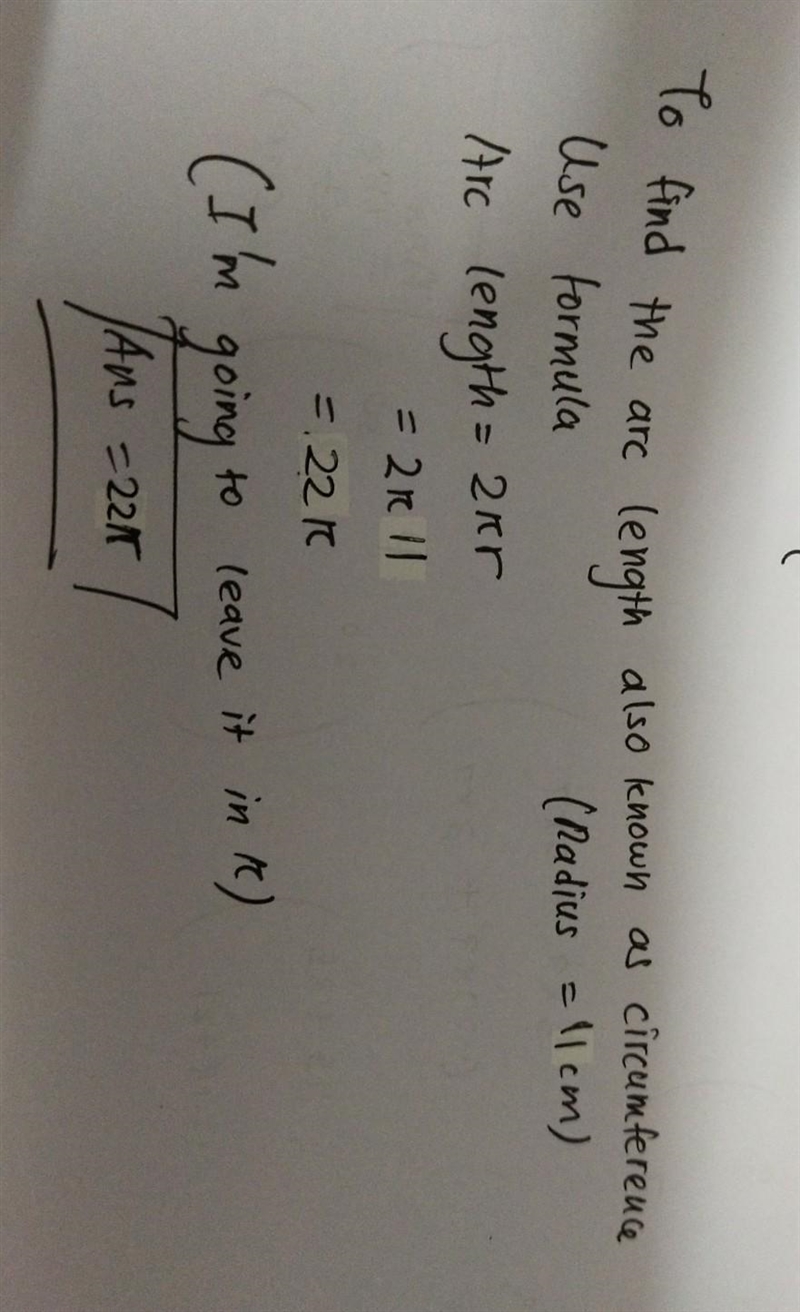 To find the arc length also known as circumference
Use formula (Radius = 11cm)
Arc length = 2πr
= 2π 11
= 22π
(I'm going to leave it in π)
Ans = 22π